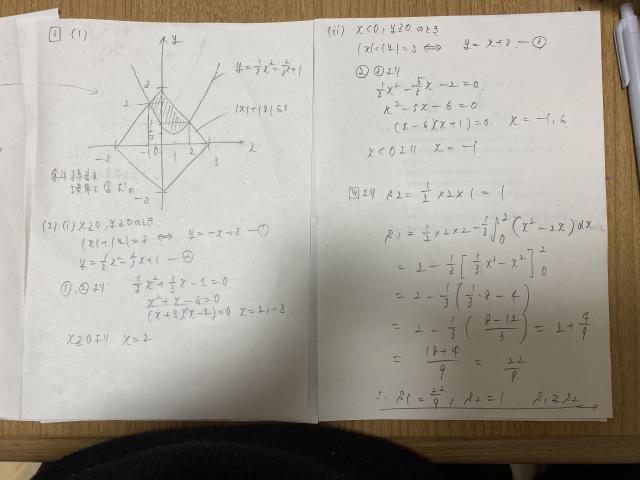 1 (1)
y
y=1/3x²-2/3x+1
3
2
|x|+|y|≦3
-3
-1
0
1
2
3
x
-3
(2)(i) x≧0, y≧0のとき
|x|+|y|=3 ⇔ y=-x+3 —①
y=1/3x²-2/3x+1 —②
①,②より 1/3x²+1/3x-2=0
x²+x-6=0
(x+3)(x-2)=0 x=2,-3
x≧0より x=2
(ii) x<0, y≧0のとき
|x|+|y|=3 ⇔ y=x+3 —③
②③より
1/3x²-5/3x-2=0
x²-5x-6=0
(x-6)(x+1)=0 x=-1,6
x<0より x=-1
図より S2=1/2×2×1=1
S1=1/2×2×2-1/3∫₀²(x²-2x)dx
=2-1/3[1/3x³-x²]₀²
=2-1/3(1/3·8-4)
=2-1/3(8-12/3)=2+4/9
=18+4/9=22/9
∴ S1=22/9, S2=1 S1≧S2